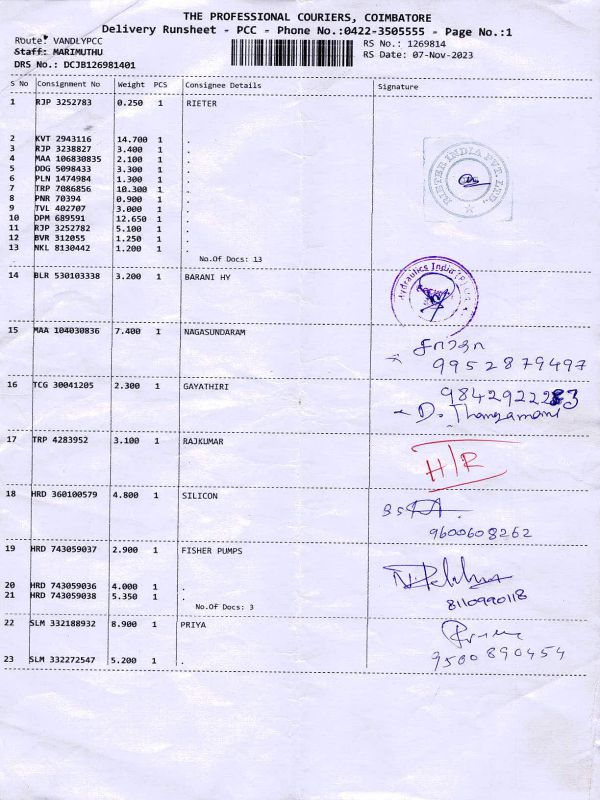 THE PROFESSIONAL COURIERS, COIMBATORE
Delivery Runsheet - PCC - Phone No.:0422-3505555 - Page No.:1
Route: VANDLYPCC
RS No.: 1269814
Staff: MARIMUTHU
RS Date: 07-Nov-2023
DRS No.: DCJB126981401
S No Consignment No Weight PCS Consignee Details Signature
1 RJP 3252783 0.250 1 RIETER
2 KVT 2943116 14.700 1 .
3 RJP 3238827 3.400 1 .
4 MAA 106830835 2.100 1 .
5 DDG 5098433 3.300 1 .
6 PLN 1474984 1.300 1 .
7 TRP 7086856 10.300 1 .
8 PNR 70394 0.900 1 .
9 TVL 402707 3.000 1 .
10 DPM 689591 12.650 1 .
11 RJP 3252782 5.100 1 .
12 BVR 312055 1.250 1 .
13 NKL 8130442 1.200 1 .
No.Of Docs: 13
RIETER INDIA PVT. LTD.,
14 BLR 530103338 3.200 1 BARANI HY
Hydraulics India
15 MAA 104030836 7.400 1 NAGASUNDARAM
9952879497
16 TCG 30041205 2.300 1 GAYATHIRI
D. Thangamani
17 TRP 4283952 3.100 1 RAJKUMAR
H/R
18 HRD 360100579 4.800 1 SILICON
9600608262
19 HRD 743059037 2.900 1 FISHER PUMPS
20 HRD 743059036 4.000 1 .
21 HRD 743059038 5.350 1 .
8110990118
No.Of Docs: 3
22 SLM 332188932 8.900 1 PRIYA
9500890454
23 SLM 332272547 5.200 1 .